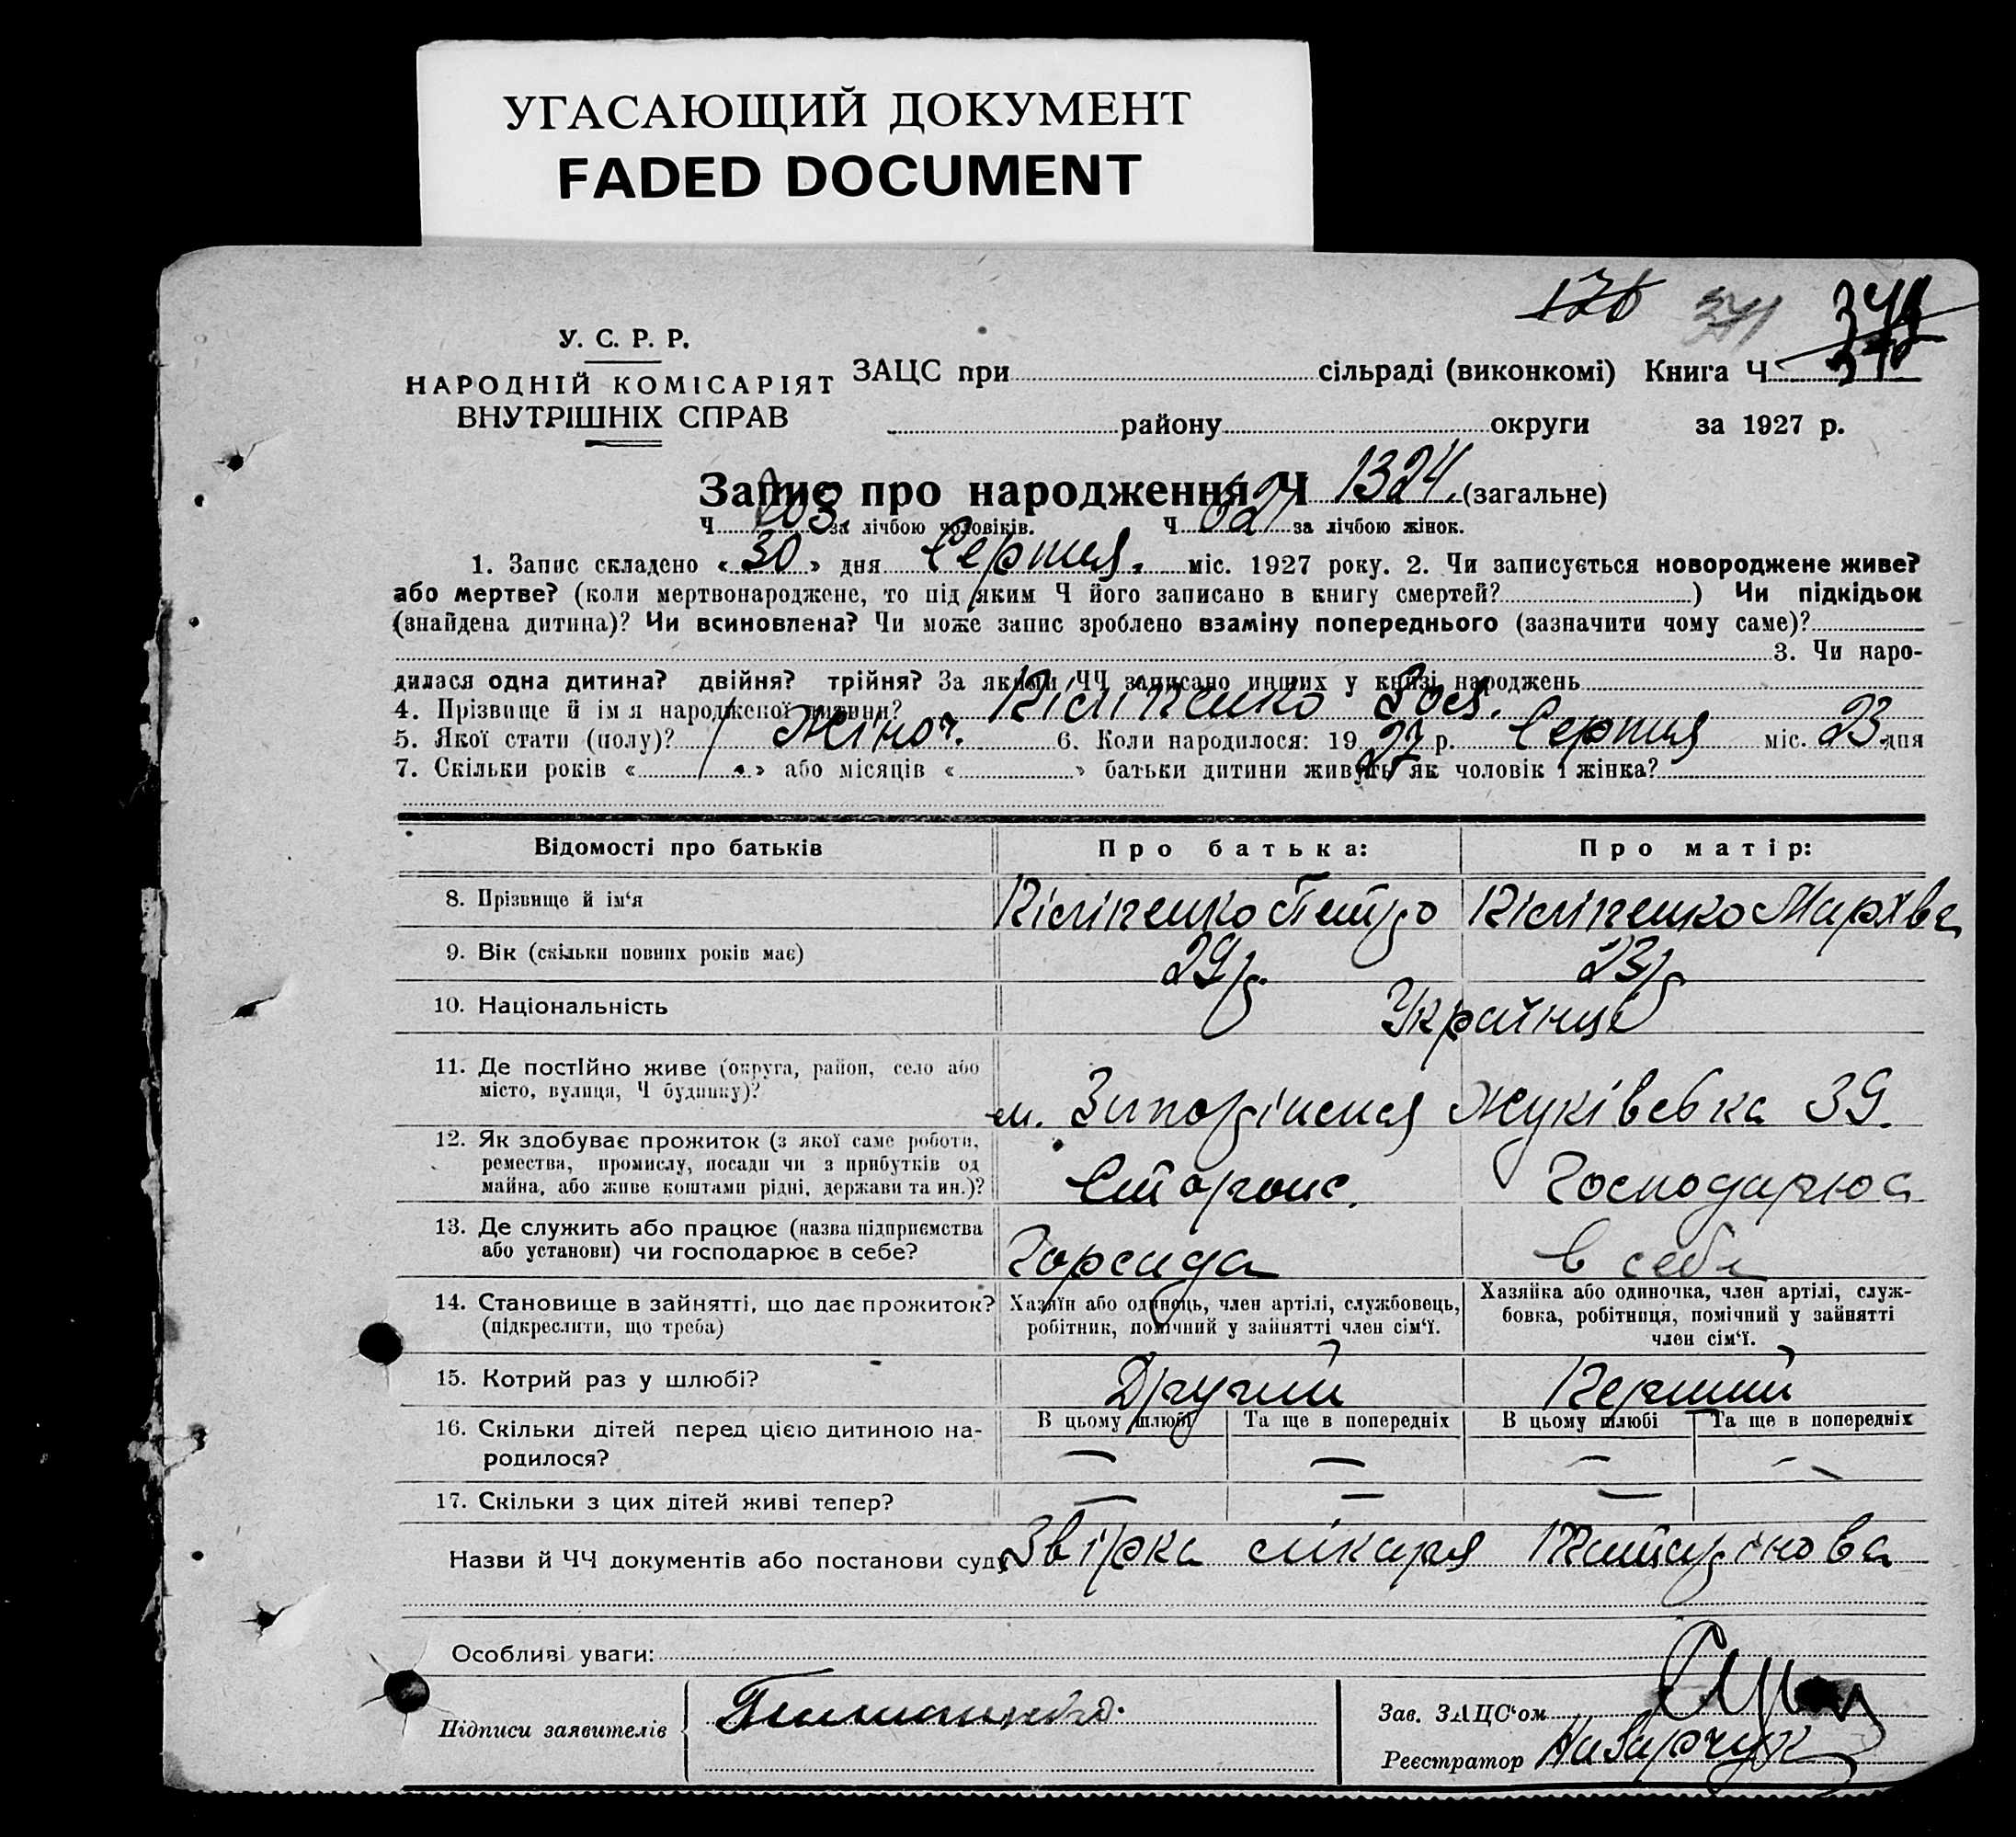 УГАСАЮЩИЙ ДОКУМЕНТ
FADED DOCUMENT
176 341
У. С. Р. Р.
НАРОДНІЙ КОМІСАРІЯТ
ВНУТРІШНІХ СПРАВ
ЗАЦС при сільраді (виконкомі) Книга Ч
району округи за 1927 р.
Запис про народження Ч 1324. (загальне)
Ч 703 за лічбою чоловіків. Ч 621 за лічбою жінок.
1. Запис складено « 30 » дня Серпня. міс. 1927 року. 2. Чи записується новороджене живе?
або мертве? (коли мертвонароджене, то під яким Ч його записано в книгу смертей? ) Чи підкідьок
(знайдена дитина)? Чи всиновлена? Чи може запис зроблено взаміну попереднього (зазначити чому саме)?
3. Чи наро-
дилася одна дитина? двійня? трійня? За якими ЧЧ записано инших у книзі народжень
4. Прізвище й ім я народженої дитини? Зоя.
5. Якої стати (полу)? Жіноч. 6. Коли народилося: 19 27 р. Серпня міс. 23 дня
7. Скільки років « » або місяців « » батьки дитини живуть як чоловік і жінка?
Відомості про батьків Про батька: Про матір:
8. Прізвище й ім‘я Петро
9. Вік (скільки повних років має) 29 р. 23 р.
10. Національність Українці
11. Де постійно живе (округа, район, село або
місто, вулиця, Ч будинку)? м. Запоріжжя Жуківська 39.
12. Як здобуває прожиток (з якої саме роботи,
ремества, промислу, посади чи з прибутків од
майна, або живе коштами рідні, держави та ин.)? Сторож. Господарює
13. Де служить або працює (назва підприємства
або установи) чи господарює в себе? Горсада в себе
14. Становище в зайнятті, що дає прожиток?
(підкреслити, що треба)
Хазяїн або одинець, член артілі, службовець,
робітник, помічний у зайнятті член сім‘ї.
Хазяйка або одиночка, член артілі, служ-
бовка, робітниця, помічний у зайнятті
член сім‘ї.
15. Котрий раз у шлюбі? Другий Перший
16. Скільки дітей перед цією дитиною на-
родилося?
В цьому шлюбі Та ще в попередніх В цьому шлюбі Та ще в попередніх
— — — —
17. Скільки з цих дітей живі тепер? — — —
Назви й ЧЧ документів або постанови суду Звірка лікаря
Особливі уваги:
Підписи заявителів
Зав. ЗАЦС‘ом
Реєстратор Назарчук